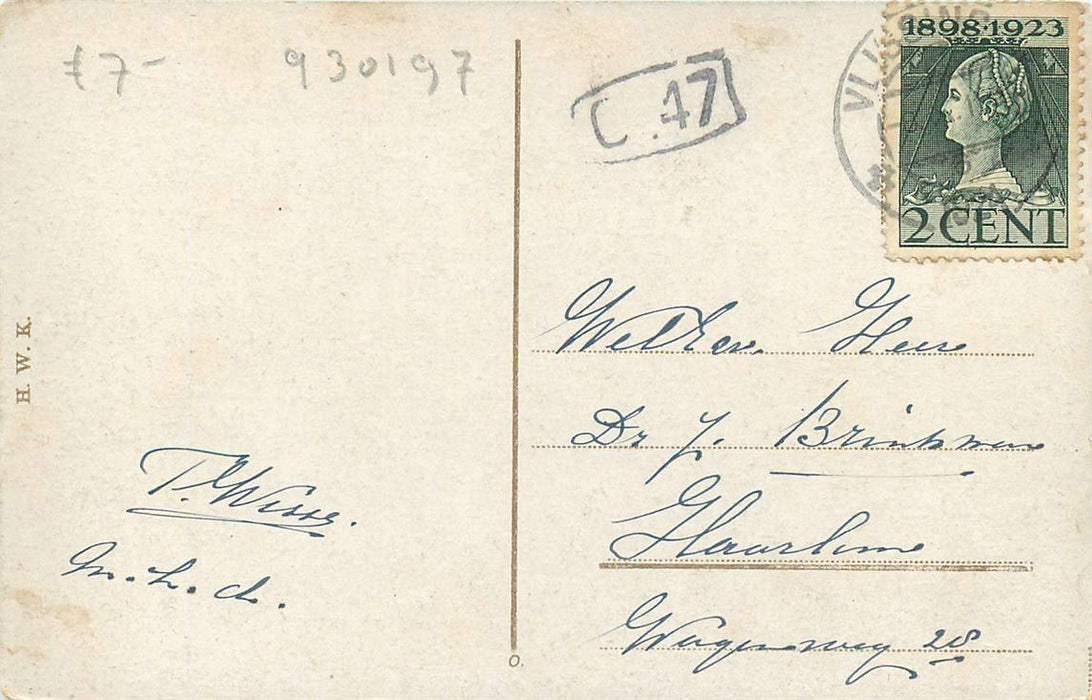 f 7-
930197
C.17
VLISSING
1898·1923
2 CENT
H. W. K.
WelEdw. Heer
Dr J. Brinkman
Haarlem
Wagenweg 28
T.
m. h. d.
O.